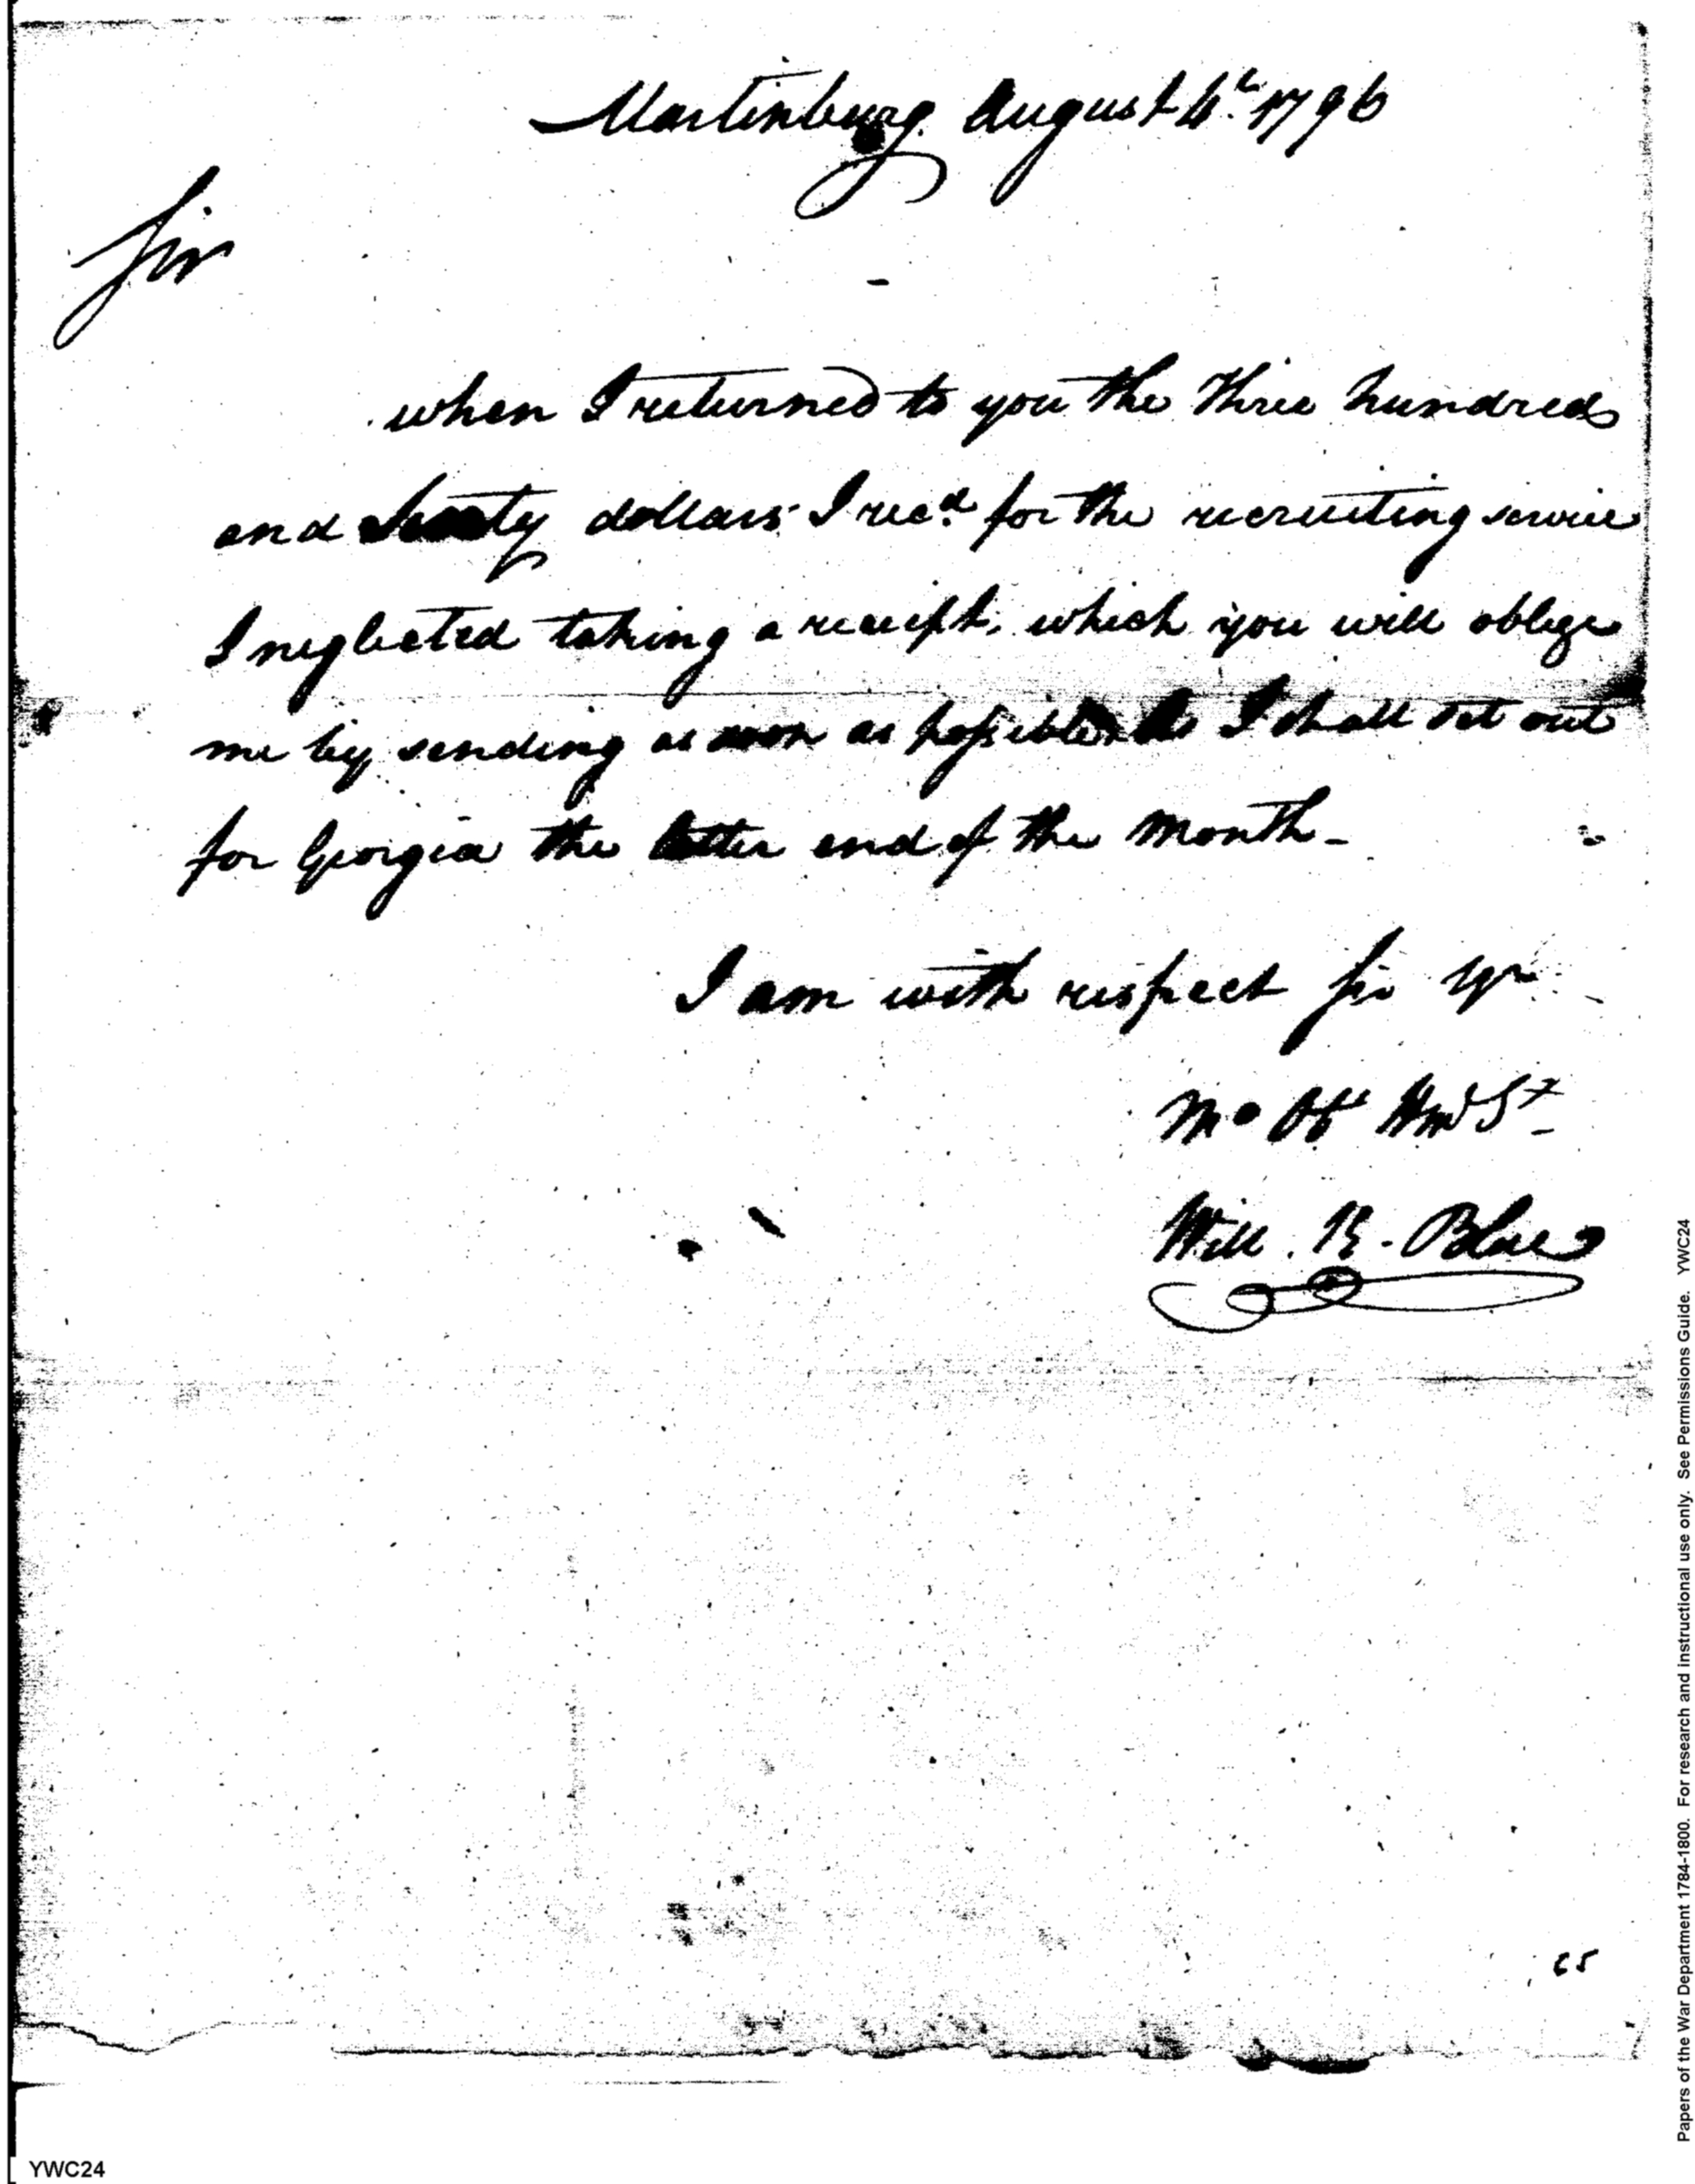 Martinburg August 4th 1796
Sir
when I returned to you the Three hundred
and dollars I recd for the recruiting service
I neglected taking a receipt, which you will oblige
me by sending as soon as possible as I shall set out
for Georgia the latter end of the Month -
I am with respect Sir yr
Mo Obt Hm St
Will. K. Blue
65
YWC24
Papers of the War Department 1784-1800. For research and instructional use only. See Permissions Guide. YWC24